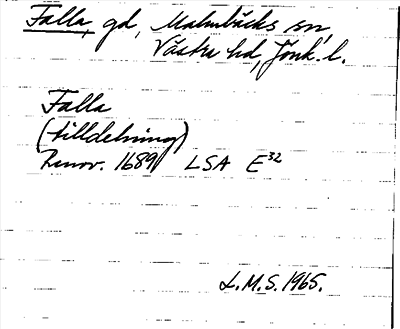 Falla, gd, Malmbäcks sn
Västra hd, Jönk. l.
Falla
(tilldelning)
Renov. 1689 LSA E32
L.M.S. 1965.